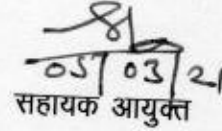 05/03/21
सहायक आयुक्त